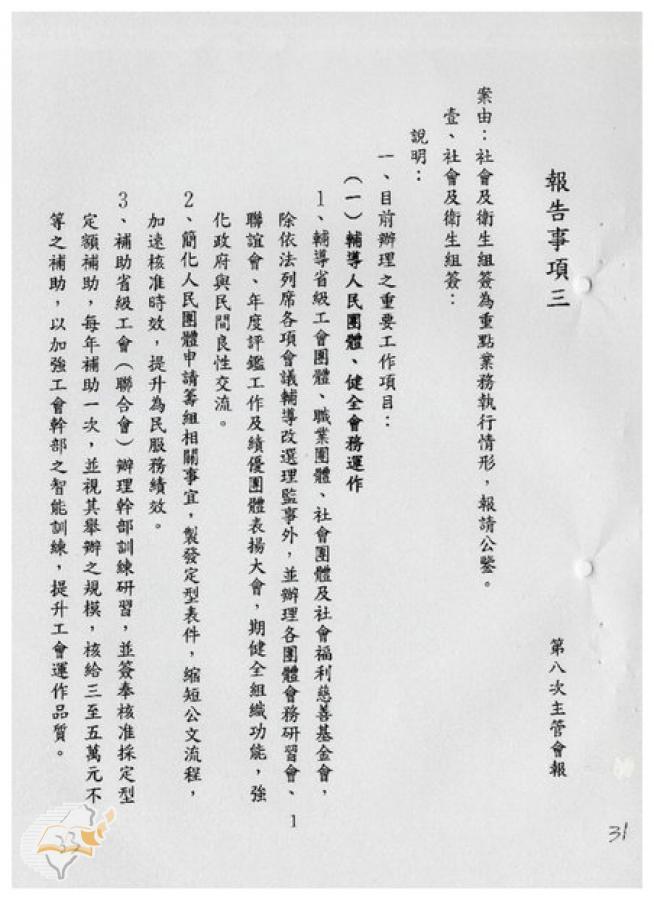 報告事項三
第八次主管會報
案由：社會及衛生組簽為重點業務執行情形，報請公鑒。
壹、社會及衛生組簽：
說明：
一、目前辦理之重要工作項目：
(一)輔導人民團體、健全會務運作
1、輔導省級工會團體、職業團體、社會團體及社會福利慈善基金會，
除依法列席各項會議輔導改選理監事外，並辦理各團體會務研習會、
聯誼會、年度評鑑工作及績優團體表揚大會，期健全組織功能，強
化政府與民間良性交流。
2、簡化人民團體申請籌組相關事宜，製發定型表件，縮短公文流程，
加速核准時效，提升為民服務績效。
3、補助省級工會(聯合會)辦理幹部訓練研習，並簽奉核准採定型
定額補助，每年補助一次，並視其舉辦之規模，核給三至五萬元不
等之補助，以加強工會幹部之智能訓練，提升工會運作品質。
1
31